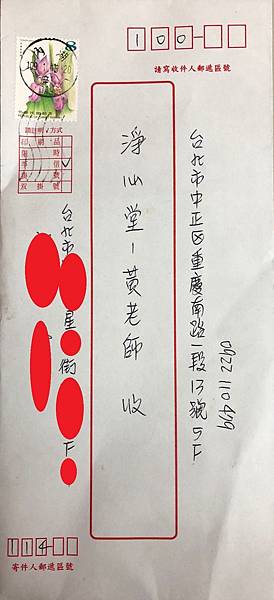 100
請寫收件人郵遞區號
0922110479
台北市中正区重慶南路一段13號5F
淨心堂-黃老師 收
請註明✓方式
印刷品
限時
平信
掛號
双掛號
台北市
星
街
F
114
寄件人郵遞區號